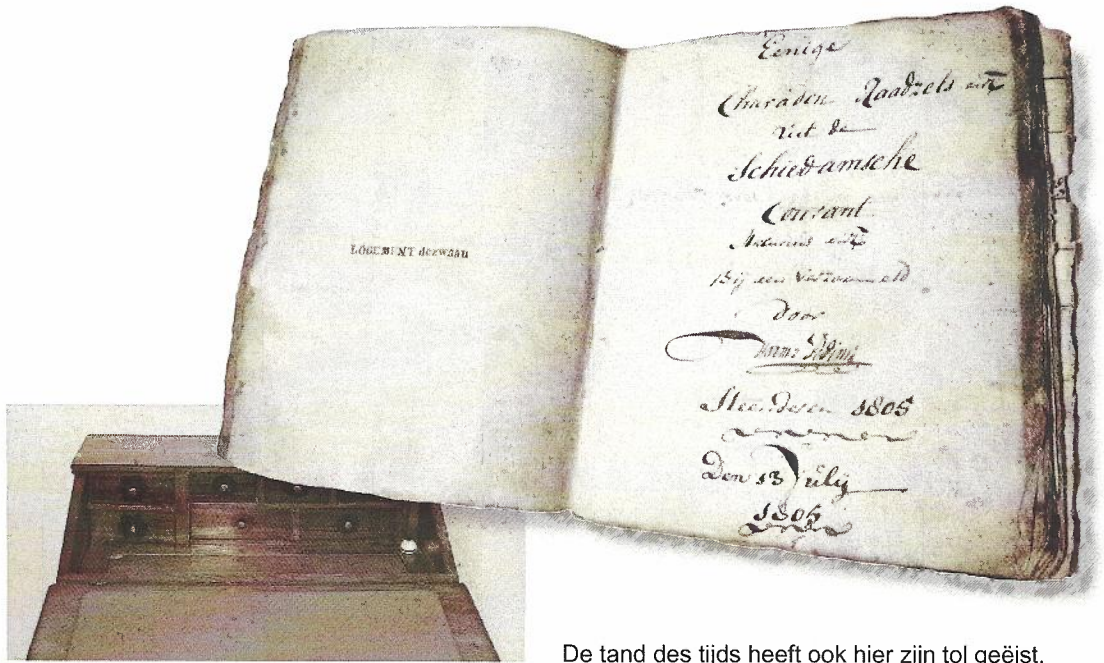 LOGEMENT dezwaan
Eenige
Charaden Raadzels en
uit de
Schiedamsche
Courant
bij een verzameld
door
Steenderen 1805
Den 13 July
1805
De tand des tijds heeft ook hier zijn tol geëist.